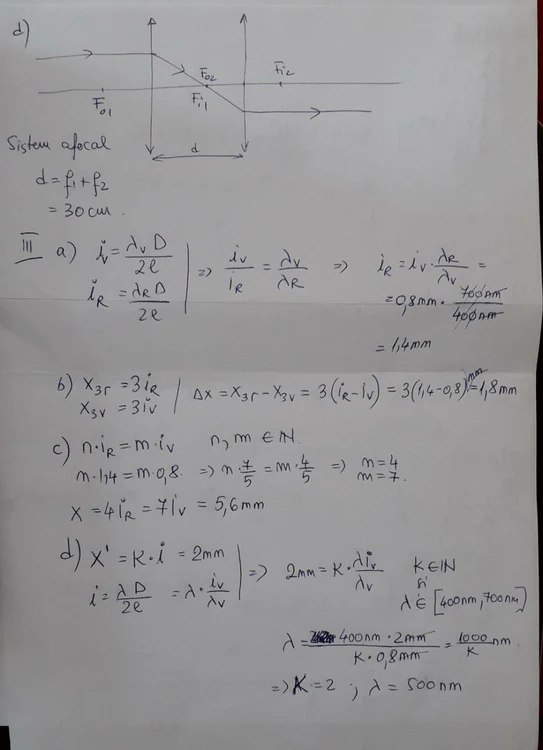 d)
F₀₁ F₀₂ Fi₁ Fi₂
Sistem afocal
d
d = f₁ + f₂
= 30 cm.
III a) i_V = λ_V D / 2l
i_R = λ_R D / 2l
=> i_V / i_R = λ_V / λ_R => i_R = i_V · λ_R / λ_V =
= 0,8mm · 700nm / 400nm
= 1,4mm
b) X_3r = 3i_R
X_3v = 3i_V
Δx = X_3r - X_3v = 3(i_R - i_V) = 3(1,4 - 0,8)mm = 1,8mm
c) n·i_R = m·i_V n, m ∈ ℕ.
n·1,4 = m·0,8 => n·7/5 = m·4/5 => n=4
m=7.
X = 4i_R = 7i_V = 5,6mm
d) X' = K·i = 2mm
i = λD / 2l = λ · i_V / λ_V
=> 2mm = K · λi_V / λ_V K ∈ ℕ
și
λ ∈ [400nm, 700nm]
λ = 400nm · 2mm / K · 0,8mm = 1000 / K nm.
=> K = 2 ; λ = 500nm